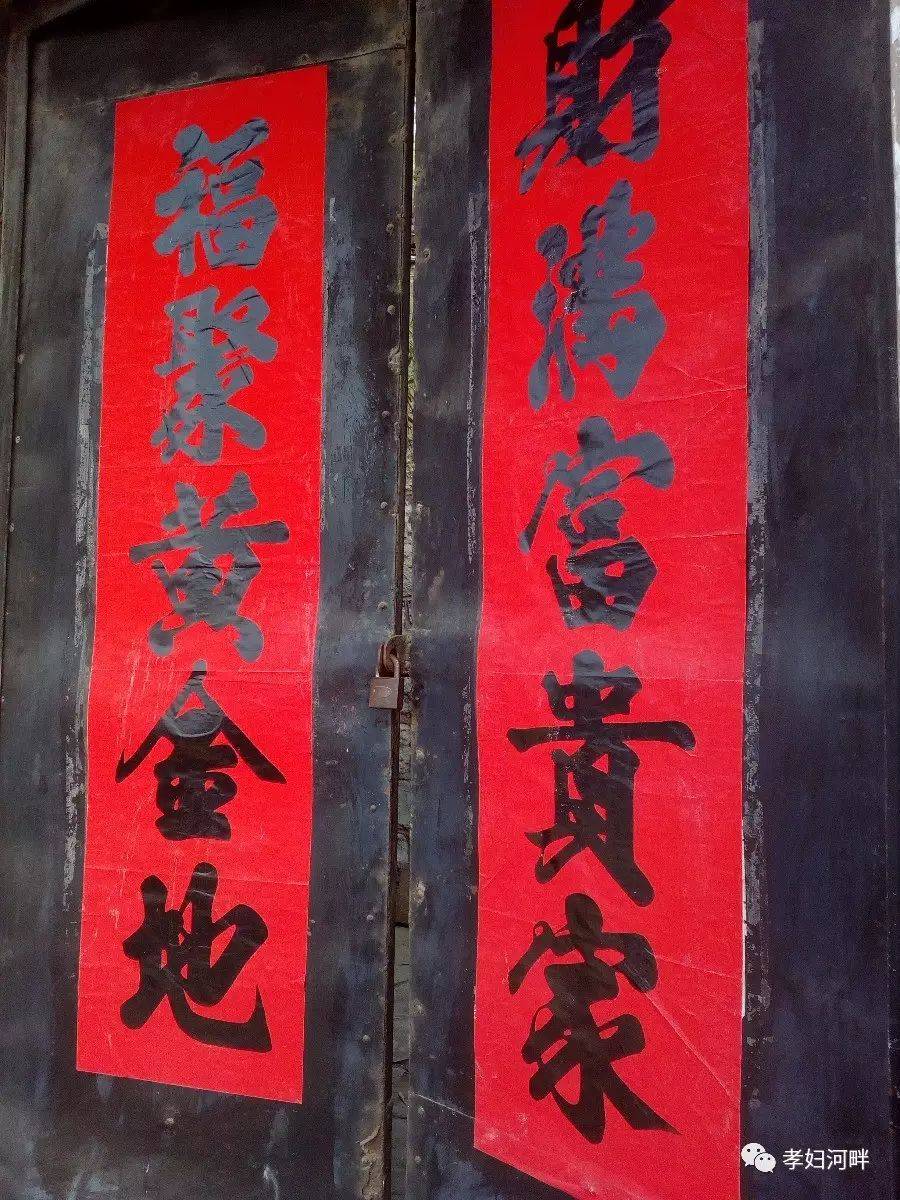 財满富貴家
福聚黄金地
孝妇河畔